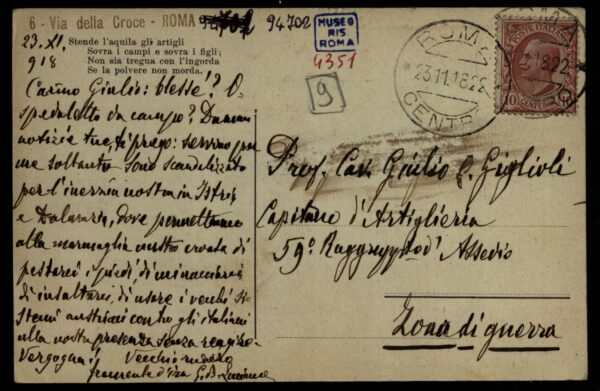 6 - Via della Croce - ROMA
94702
MUSEO
RIS
ROMA
4351
9
23. XI.
918
Stende l'aquila gli artigli
Sovra i campi e sovra i figli;
Non sia tregua con l'ingorda
Se la polvere non morda.
ROMA
23.11.18.22
CENTRO
POSTE ITALIANE
10 CENTESIMI 10
Carino Giulio: blessé? O-
spedaletto da campo? Dammi
notizie tue ti prego:
me soltanto sono scandalizzato
per l'inerzia nostra in Istria
e Dalmazia, dove permettiamo
alla marmaglia austro croata di
pestarci i piedi, di minacciarci
di insultarci, di usare i vecchi si-
stemi austriaci contro gli italiani
alla nostra presenza senza reagire.
Vergogna!! Vecchio
fremente d'ira G. B.
Prof. Cav. Giulio Q. Giglioli
Capitano d'Artiglieria
59º d'Assedio
Zona di guerra